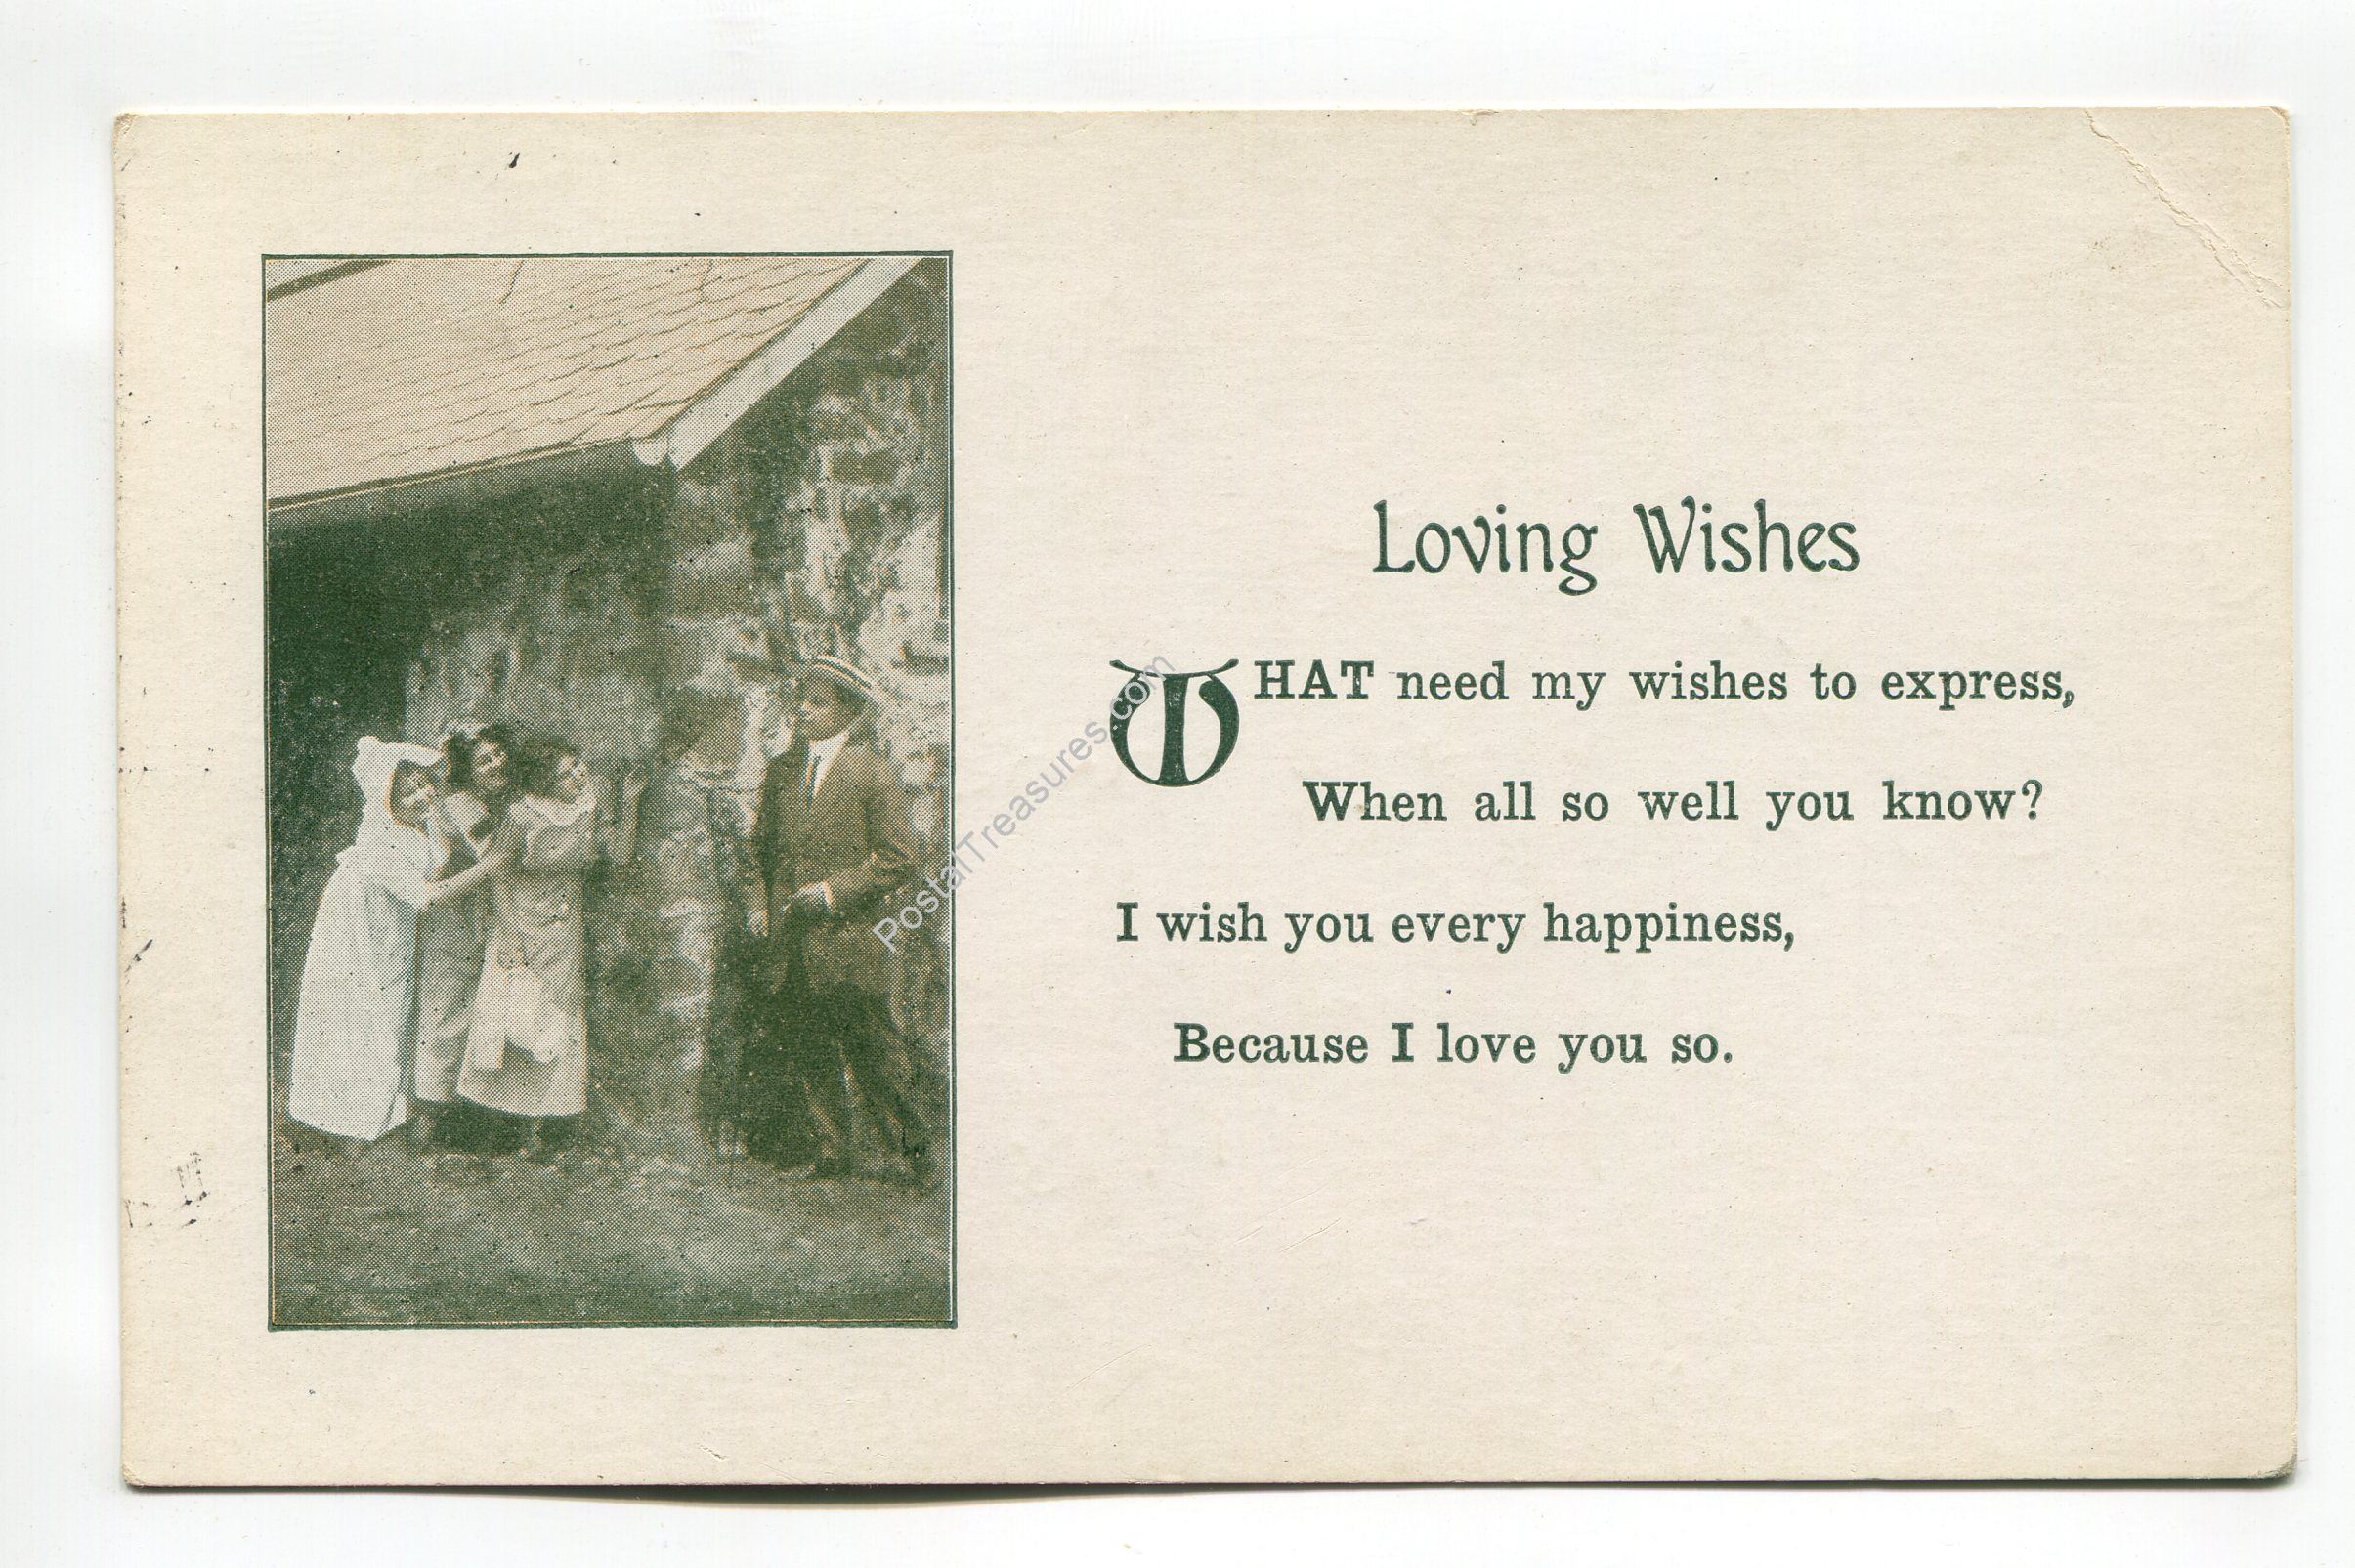 Loving Wishes
WHAT need my wishes to express,
When all so well you know?
I wish you every happiness,
Because I love you so.
PostalTreasures.com